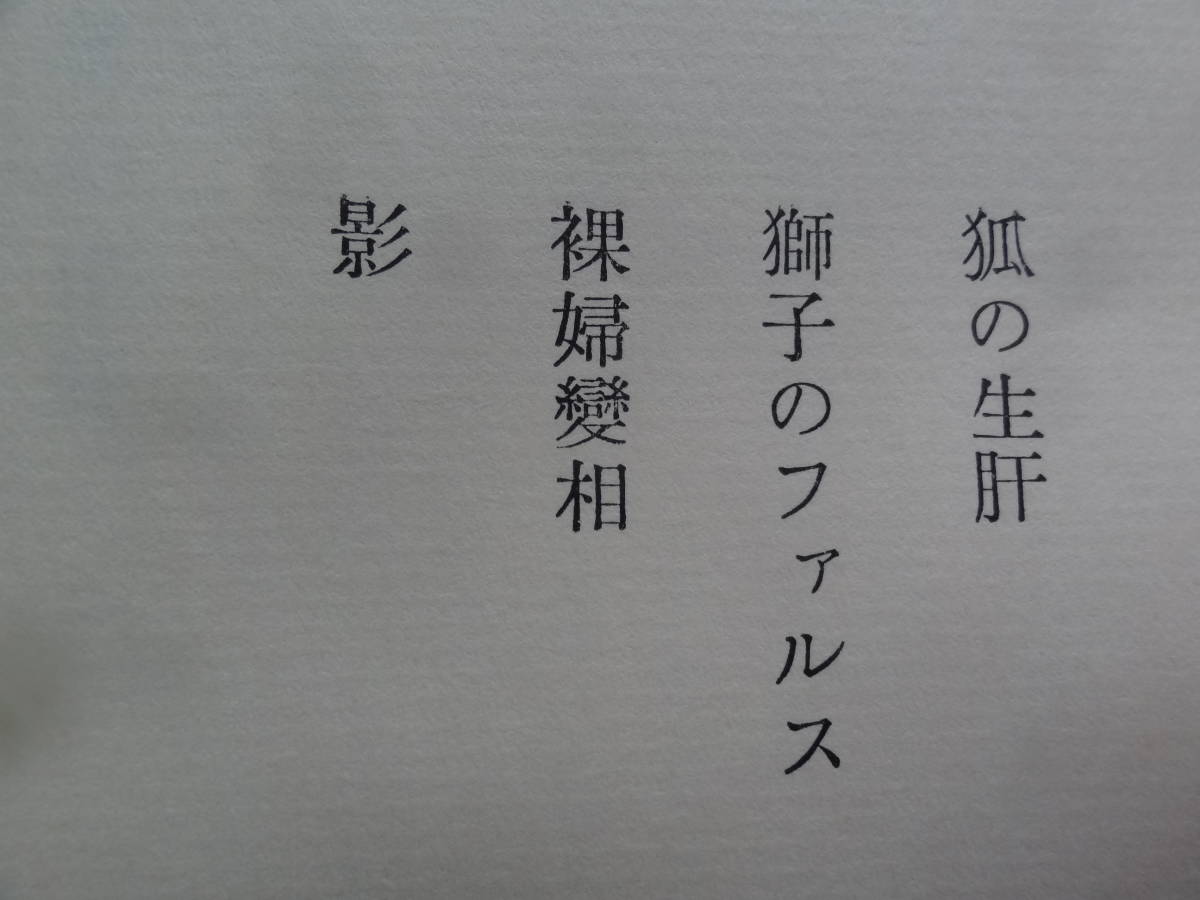 狐の生肝
獅子のファルス
裸婦變相
影